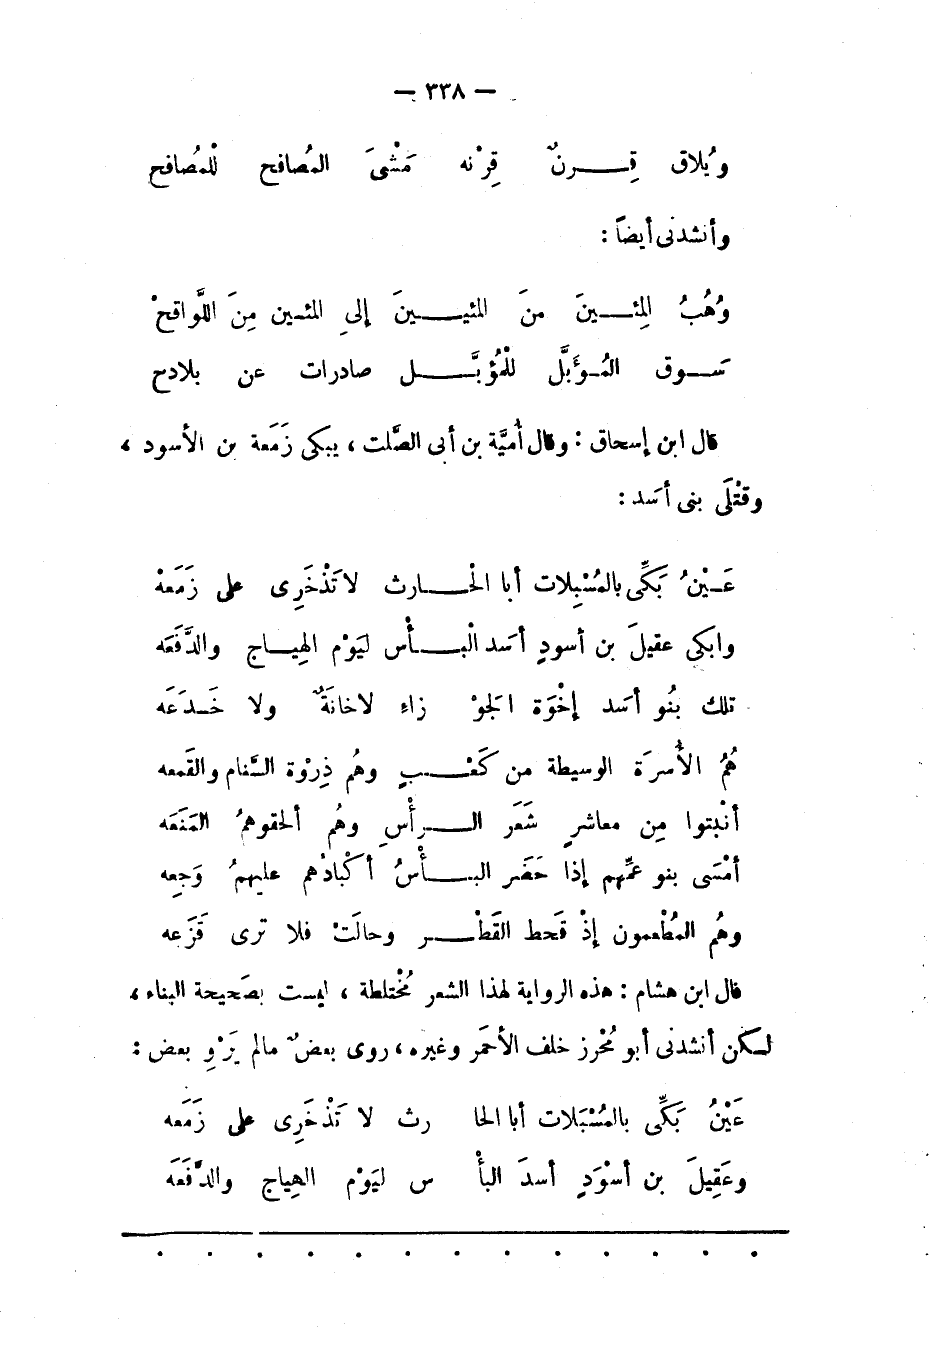 — ٣٣٨ —
ويُلاق قِـــرنٌ قِرْنه مَشْىَ المُصافح لْلمُصافح
وأنشدنى أيضاً :
وُهُبُ المِئـــينَ منَ المئيـــينَ إلىِ المئـين مِنَ اللَّواقحْ
سَــوق المُـؤَبَّل للْمُؤبَّـــل صادرات عن بلادح
قال ابن إسحاق : وقال أُميَّة بن أبى الصَّلت ، يبكى زَمَعة بن الأسود ،
وقتْلَى بنى أسَد :
عَـيْنُ بَكِّى بالمُسْبِلات أبا الْحـــارث لاتَذْخَرِى على زَمَعَهْ
وابكى عقيلَ بن أسودٍ أسَد الْبـــأْس ليَوْم الهِيـــاج والدَّفَعَه
تلك بنُو أسَد إخْوَة الجَوْ زاء لاخانَةٌ ولا خَـدَعَه
هُمُ الأُسرَة الوسيطة من كَعْـــبٍ وهُم ذِرْوة السَّنام والقَمعه
أنْبتوا مِن معاشرٍ شَعَر الـــرأْسِ وهُم ألحقوهمُ المَنَعَه
أمْسَى بنو عَمِّهم إذا حَضَر البـــأْسُ أكْبادُهم عليهمُ وَجِعه
وهُم المُطْعمون إذْ قَحط القَطْـــر وحالَتْ فلا ترى قَزَعه
قال ابن هشام : هذه الرواية لهذا الشعر مُخْتلطة ، ليست بصَحيحة البناء ،
لـكن أنشدنى أبو مُحْرز خلف الأحمَر وغيره ، روى بعضٌ مالم يَرْوِ بعض :
عَيْنُ بَكِّى بالمُسْبَلات أبا الحا رث لا تَذْخَرِى على زَمَعه
وعَقِيلَ بن أسْوَدٍ أسدَ البأْ س ليَوْم الهِياج والدَّفَعَه